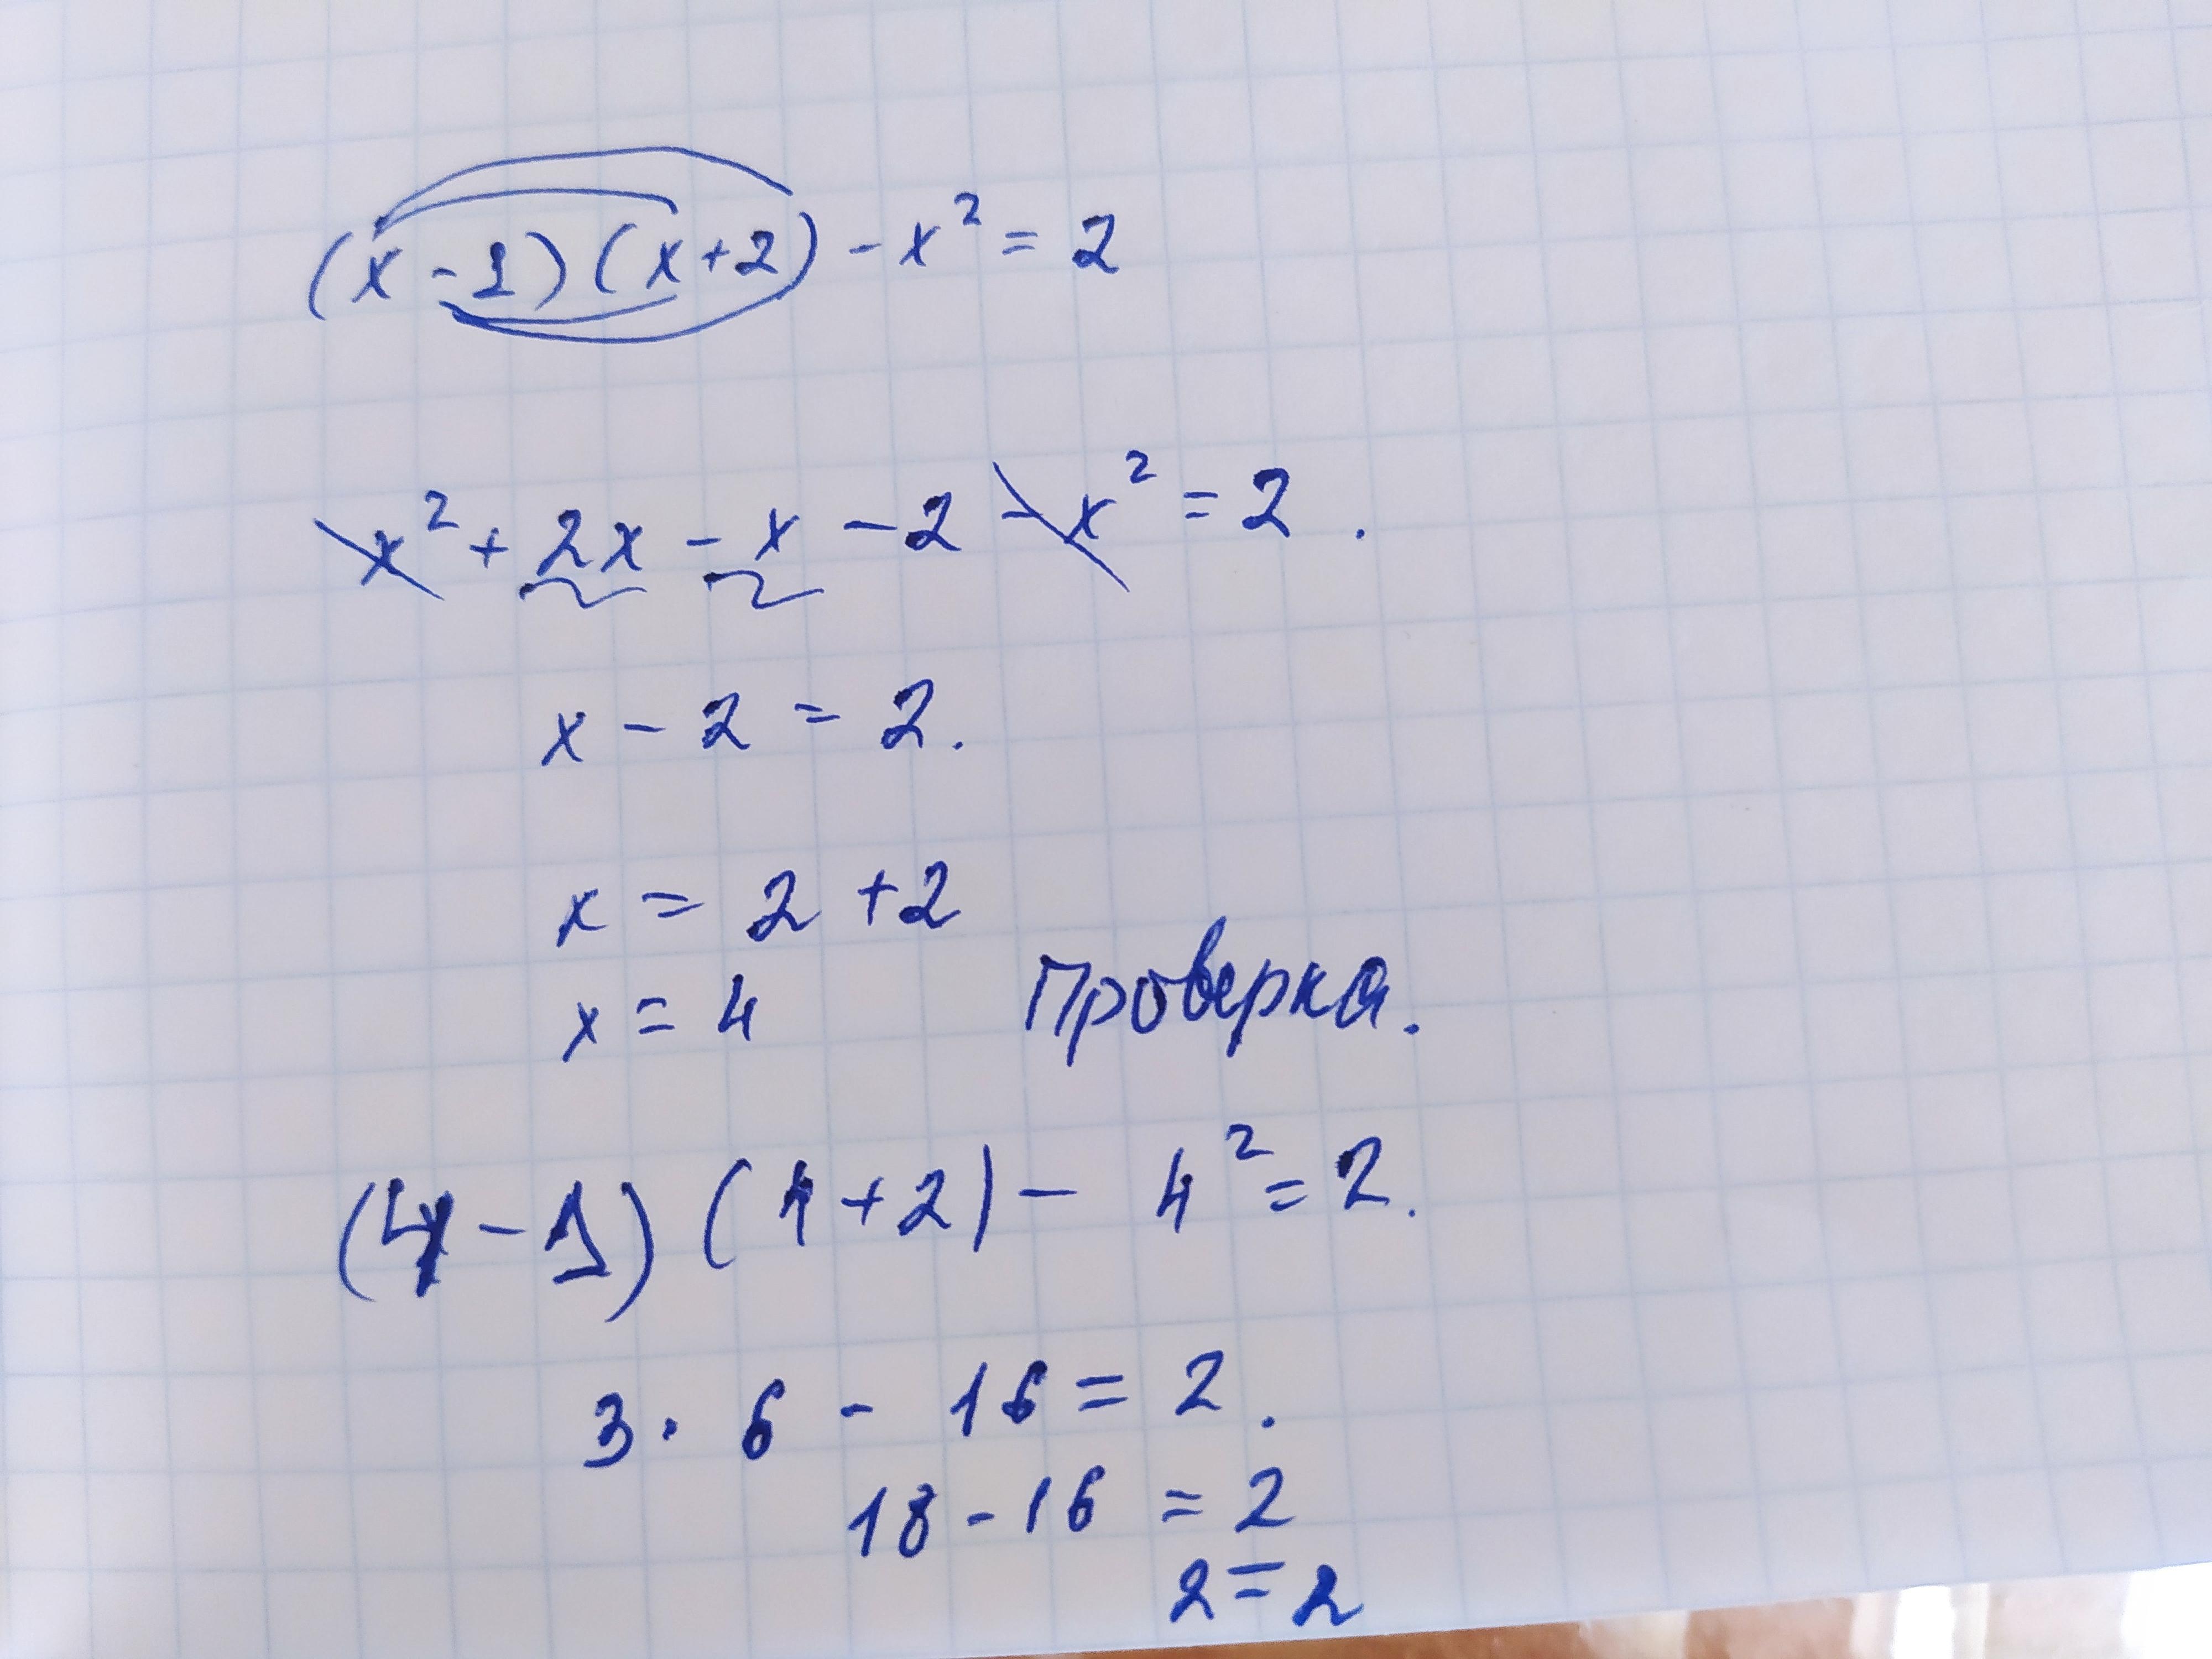 (x-1)(x+2)-x²=2
x²+2x-x-2-x²=2.
x-2=2.
x=2+2
x=4 Проверка.
(4-1)(4+2)-4²=2.
3·6-16=2.
18-16=2
2=2